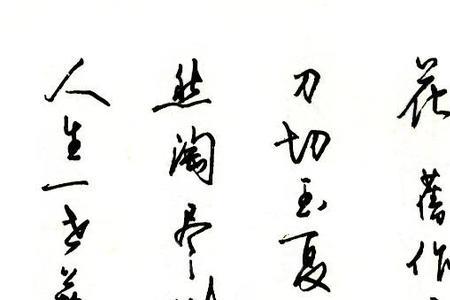 花舊作
刀切玉夏
然淘尽
人生一世